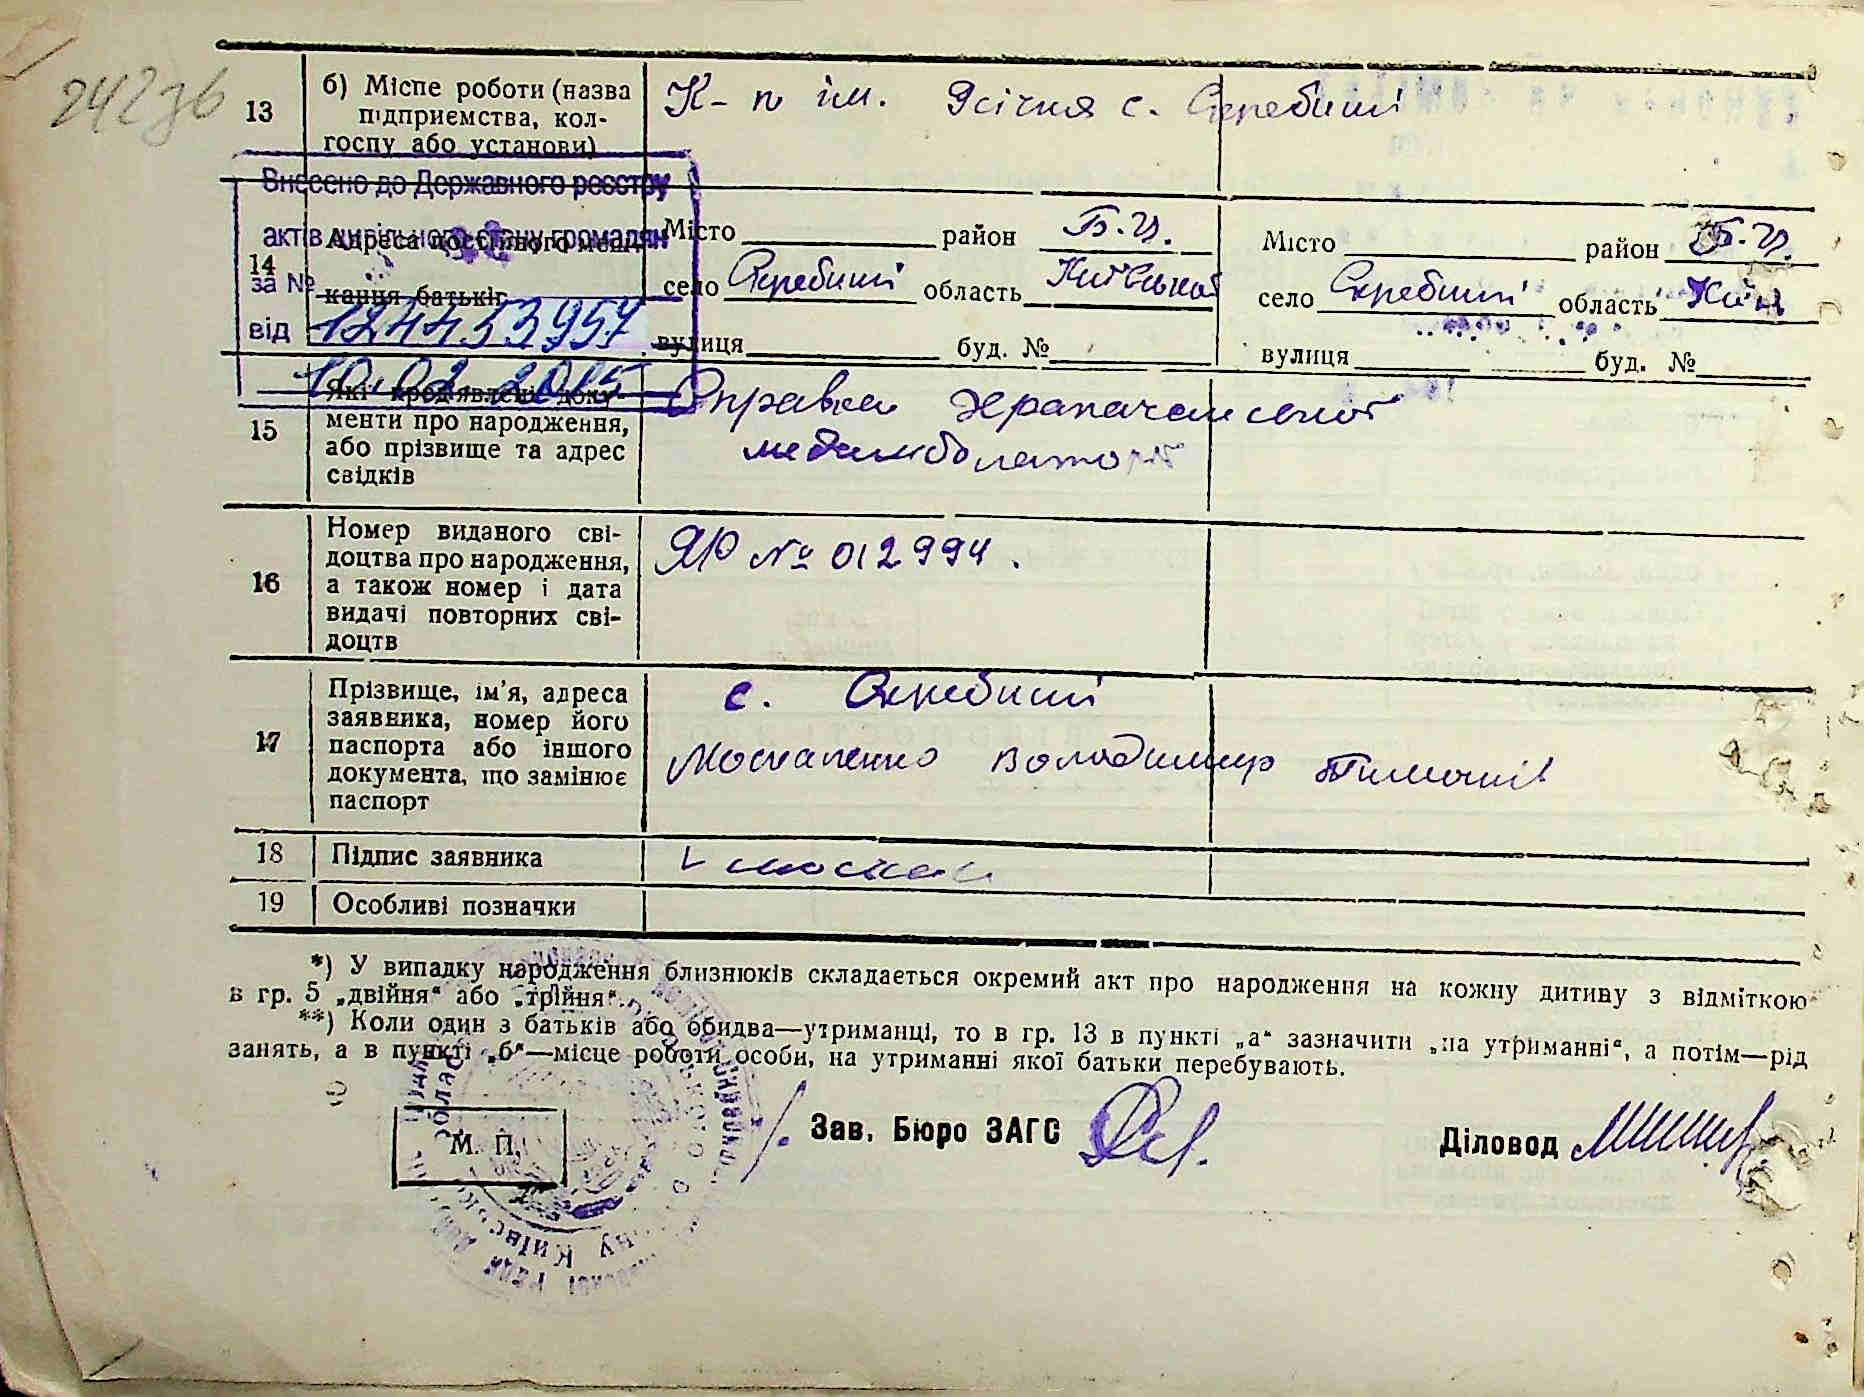 242зв
13
б) Місце роботи (назва
підприємства, кол-
госпу або установи)
К-п ім. 9 січня с. Скребиші
Внесено до Державного реєстру
актів цивільного стану громадян
за №
12445 3957
від
10.02.2015
14
Адреса постійного меш-
кання батьків
Місто район Б-Ц.
село Скребиші область Київської
вулиця буд. №
Місто район Б-Ц.
село Скребиші область Київ
вулиця буд. №
15
Які пред'явлені доку-
менти про народження,
або прізвище та адрес
свідків
Справка Храпачанської
медамболаторії
16
Номер виданого сві-
доцтва про народження,
а також номер і дата
видачі повторних сві-
доцтв
ЯЮ № 012994.
17
Прізвище, ім'я, адреса
заявника, номер його
паспорта або іншого
документа, що замінює
паспорт
с. Скребиші
Москаленко Володимир Тимоші
18
Підпис заявника
19
Особливі позначки
*) У випадку народження близнюків складається окремий акт про народження на кожну дитину з відміткою
в гр. 5 „двійня“ або „трійня“.
**) Коли один з батьків або обидва—утриманці, то в гр. 13 в пункті „а“ зазначити „на утриманні“, а потім—рід
занять, а в пункті „б“—місце роботи особи, на утриманні якої батьки перебувають.
М. П.
Зав. Бюро ЗАГС
Діловод